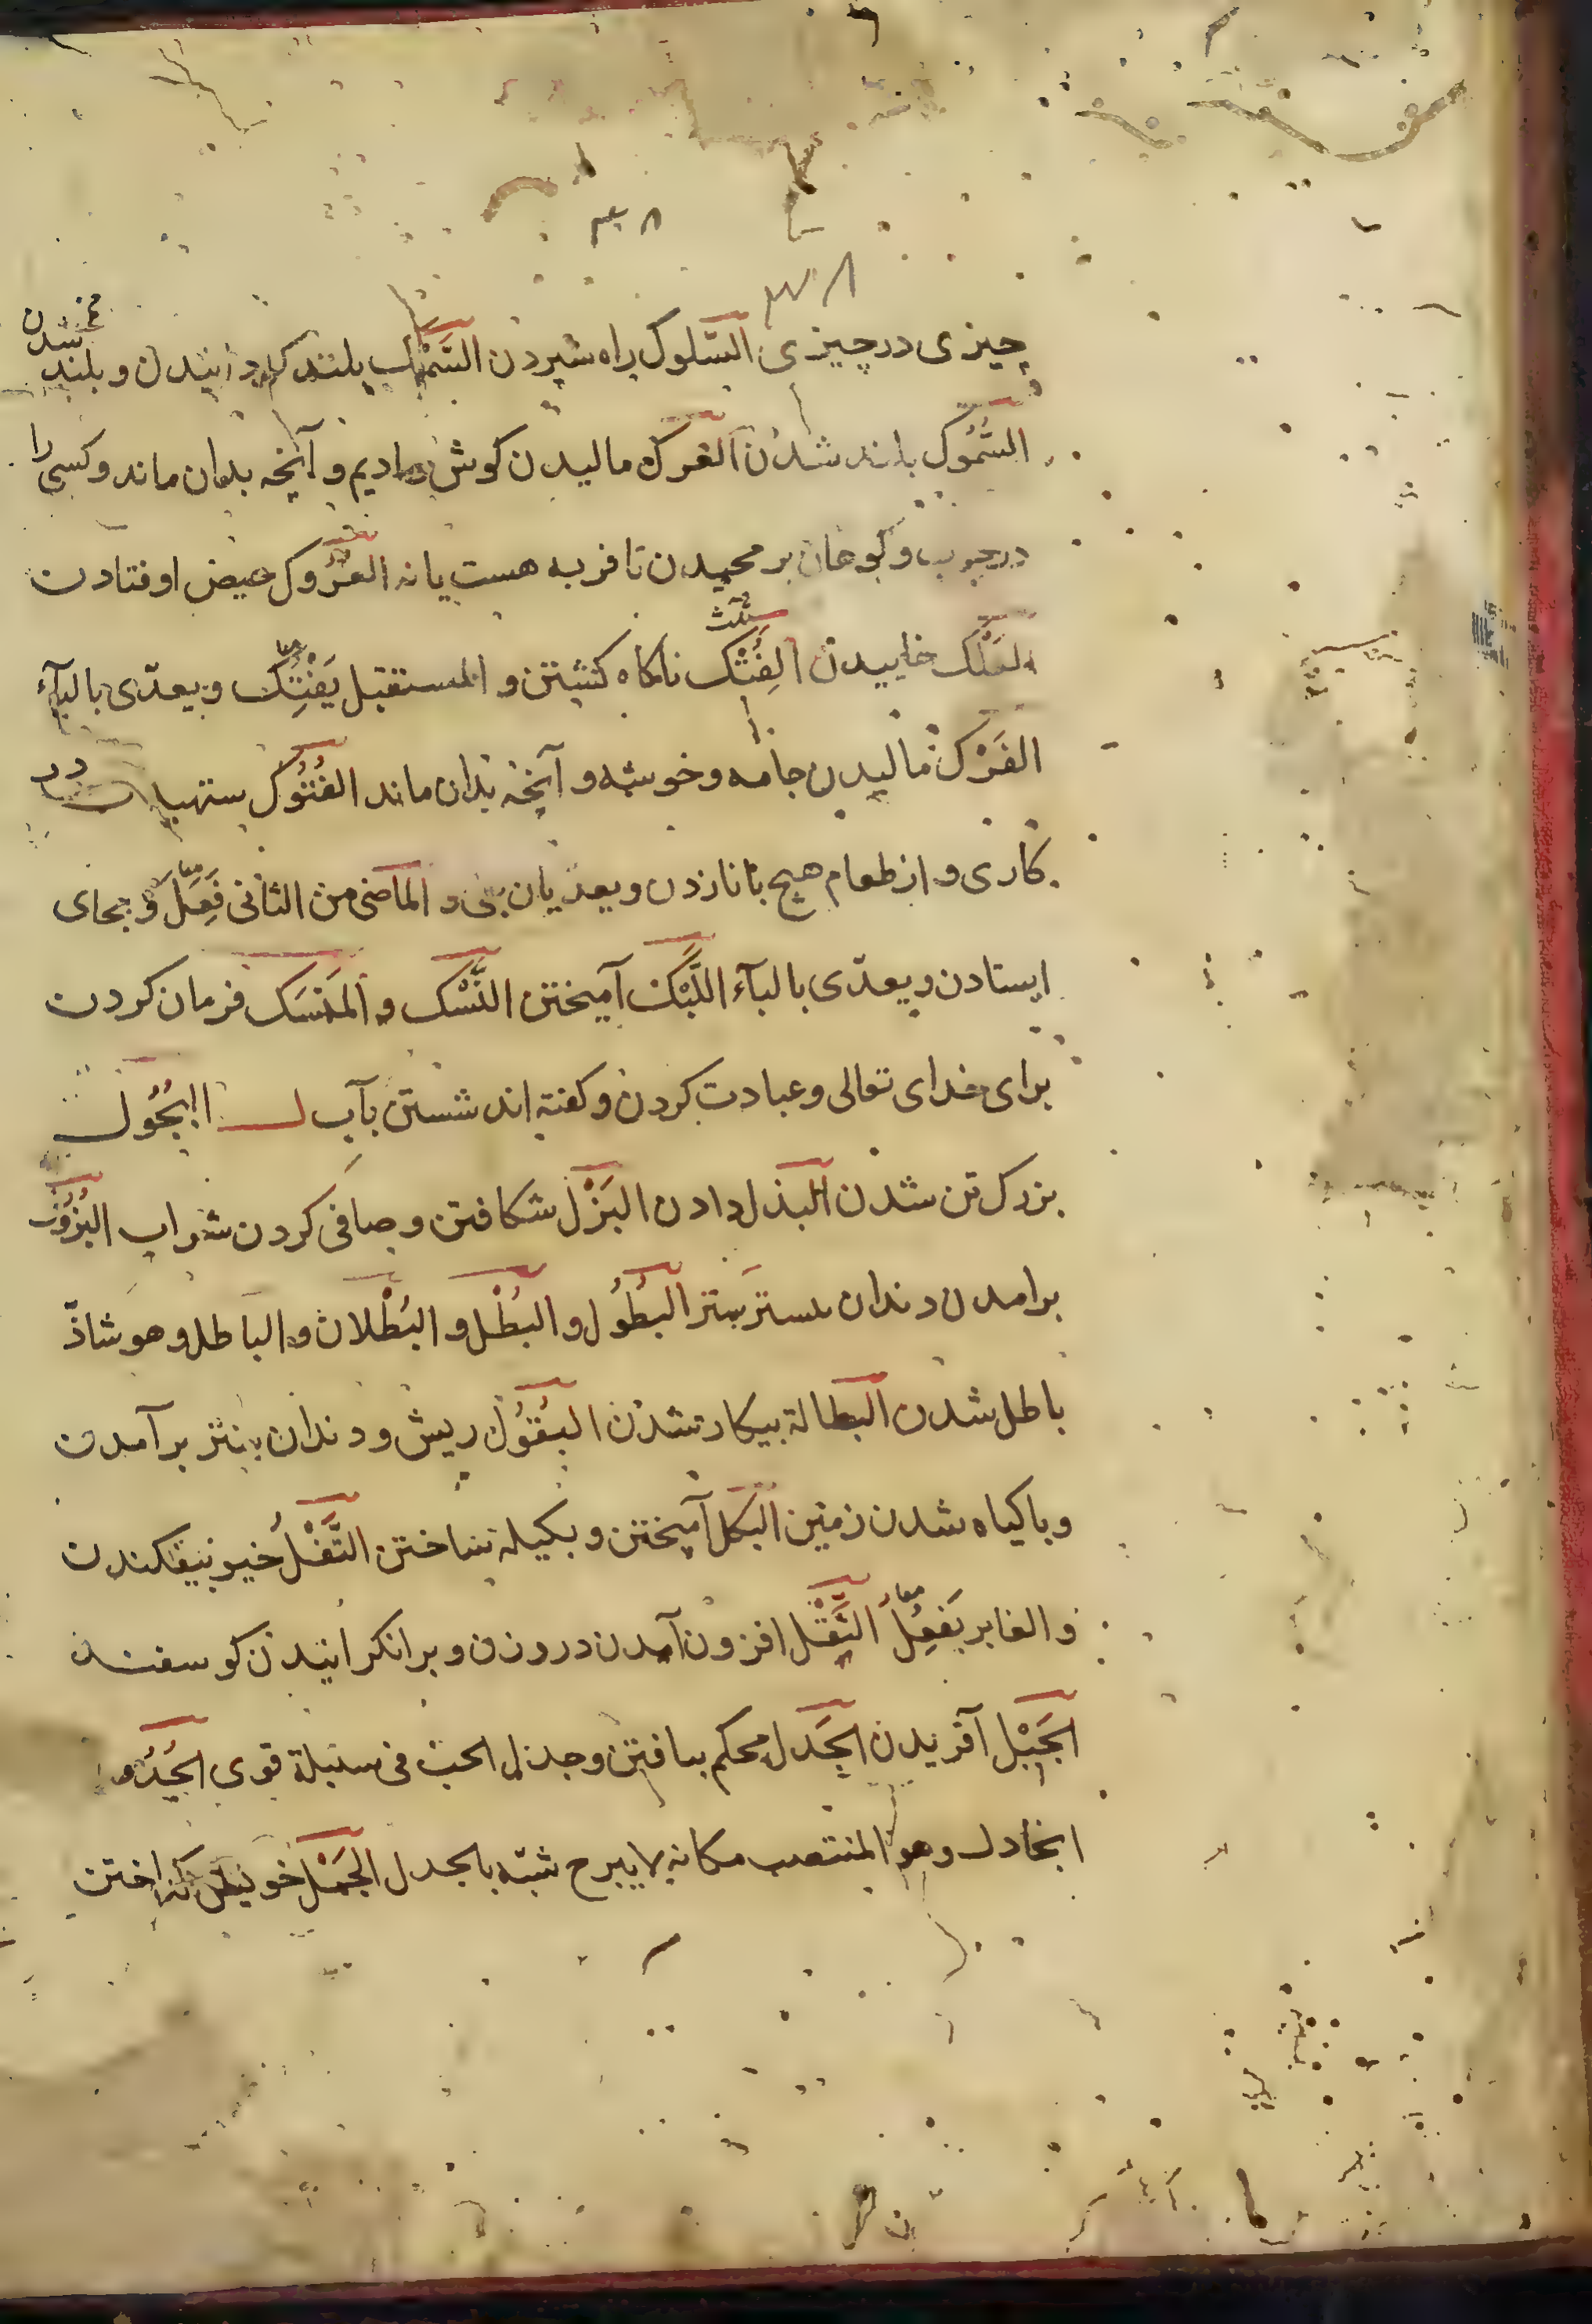 چیزی در چیزی السّلوک راه سپردن السَّمْک بلند کردانیدن و بلند شدن
السُّمُوک بلند شدن العَرک مالیدن کوش و ادیم و آنچه بدان ماند و کسی را
در و کوهان بر محیدن تا فربه هست یا نه العُرُوک حیض اوفتادن
العَلْک خاییدن الفتک ناکاه کشتن و المستقبل یفتک و یعدّی بالبآء
الفَرْک مالیدن جامه و خوشه و آنچه بدان ماند الفُنُوک ستهیدن در
کاری و از طعام هیچ بانازدن و یعدّیان بفی و الماضی من الثانی فعل و بجای
ایستادن و یعدّی بالبآء اللَّبْک آمیختن النَّسْک و المَنْسَک فرمان کردن
برای خدای تعالی و عبادت کردن و کفته اند شستن بآب ل البُجُول
بزرک تن شدن البذل دادن البَزْل شکافتن و صافی کردن شراب البُزُول
برامدن دندان شتر البُطُول و البُطْل و البُطْلان و الباطل و هو شاذّ
باطل شدن البَطالة بیکار شدن البُقُول ریش و دندان شتر برآمدن
و باکیاه شدن زمین البَکْل آمیختن و بکیله ساختن التَّفْل خیو بیفکندن
و الغابر یفعل معا الثَّقْل افزون آمدن در وزن و برانکرانیدن کوسفند
الجَبْل آفریدن الجَدل محکم بافتن و جدل الحب فی سنبلة قوی الجُدُو
الجادل و هو المنتصب مکانه لا یبرح شبّه بالجدل الجَمْل کداختن